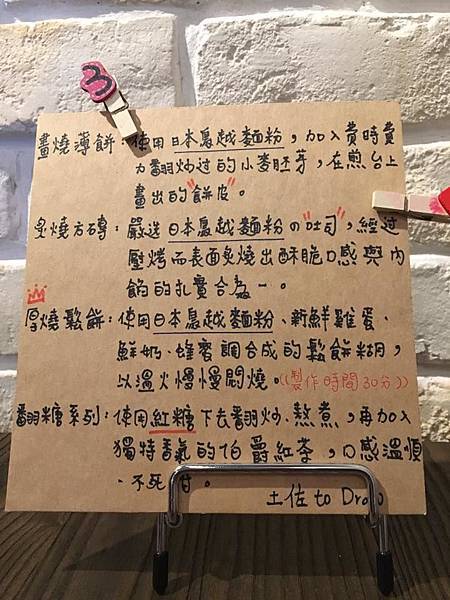 3
畫燒薄餅:使用日本鳥越麵粉,加入費時費
力翻炒过的小麥胚芽,在煎台上
畫出的"餅皮"。
炙燒方磚:嚴选日本鳥越麵粉の"吐司",經过
壓烤而表面炙燒出酥脆口感與內
餡的扎實合為一。
厚燒鬆餅:使用日本鳥越麵粉、新鮮雞蛋、
鮮奶、蜂蜜調合成的鬆餅糊,
以溫火慢慢悶燒。((製作時間30分))
翻糖系列:使用紅糖下去翻炒、熬煮,再加入
獨特香氣的伯爵紅茶,口感溫順
、不死甘。
土佐to Draw